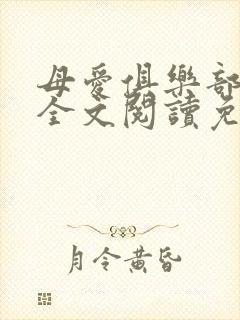 母愛俱樂部
全文閱讀免
月令黃昏